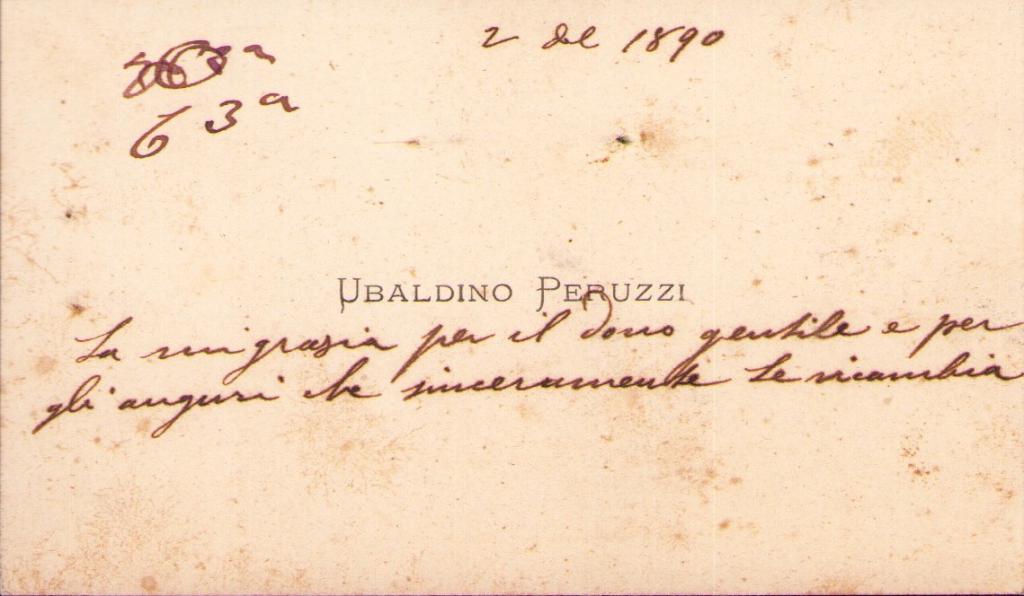 2 del 1890
63ª
UBALDINO PERUZZI
La ringrazia per il dono gentile e per
gli auguri che sinceramente Le ricambia